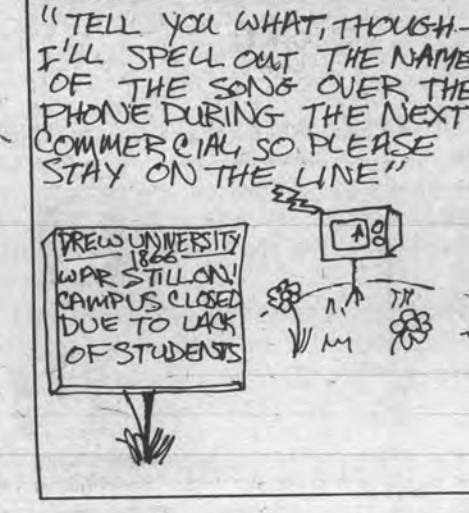 "TELL YOU WHAT, THOUGH-
I'LL SPELL OUT THE NAME
OF THE SONG OVER THE
PHONE DURING THE NEXT
COMMERCIAL, SO PLEASE
STAY ON THE LINE"
DREW UNIVERSITY
1866
WAR STILL ON!
CAMPUS CLOSED
DUE TO LACK
OF STUDENTS